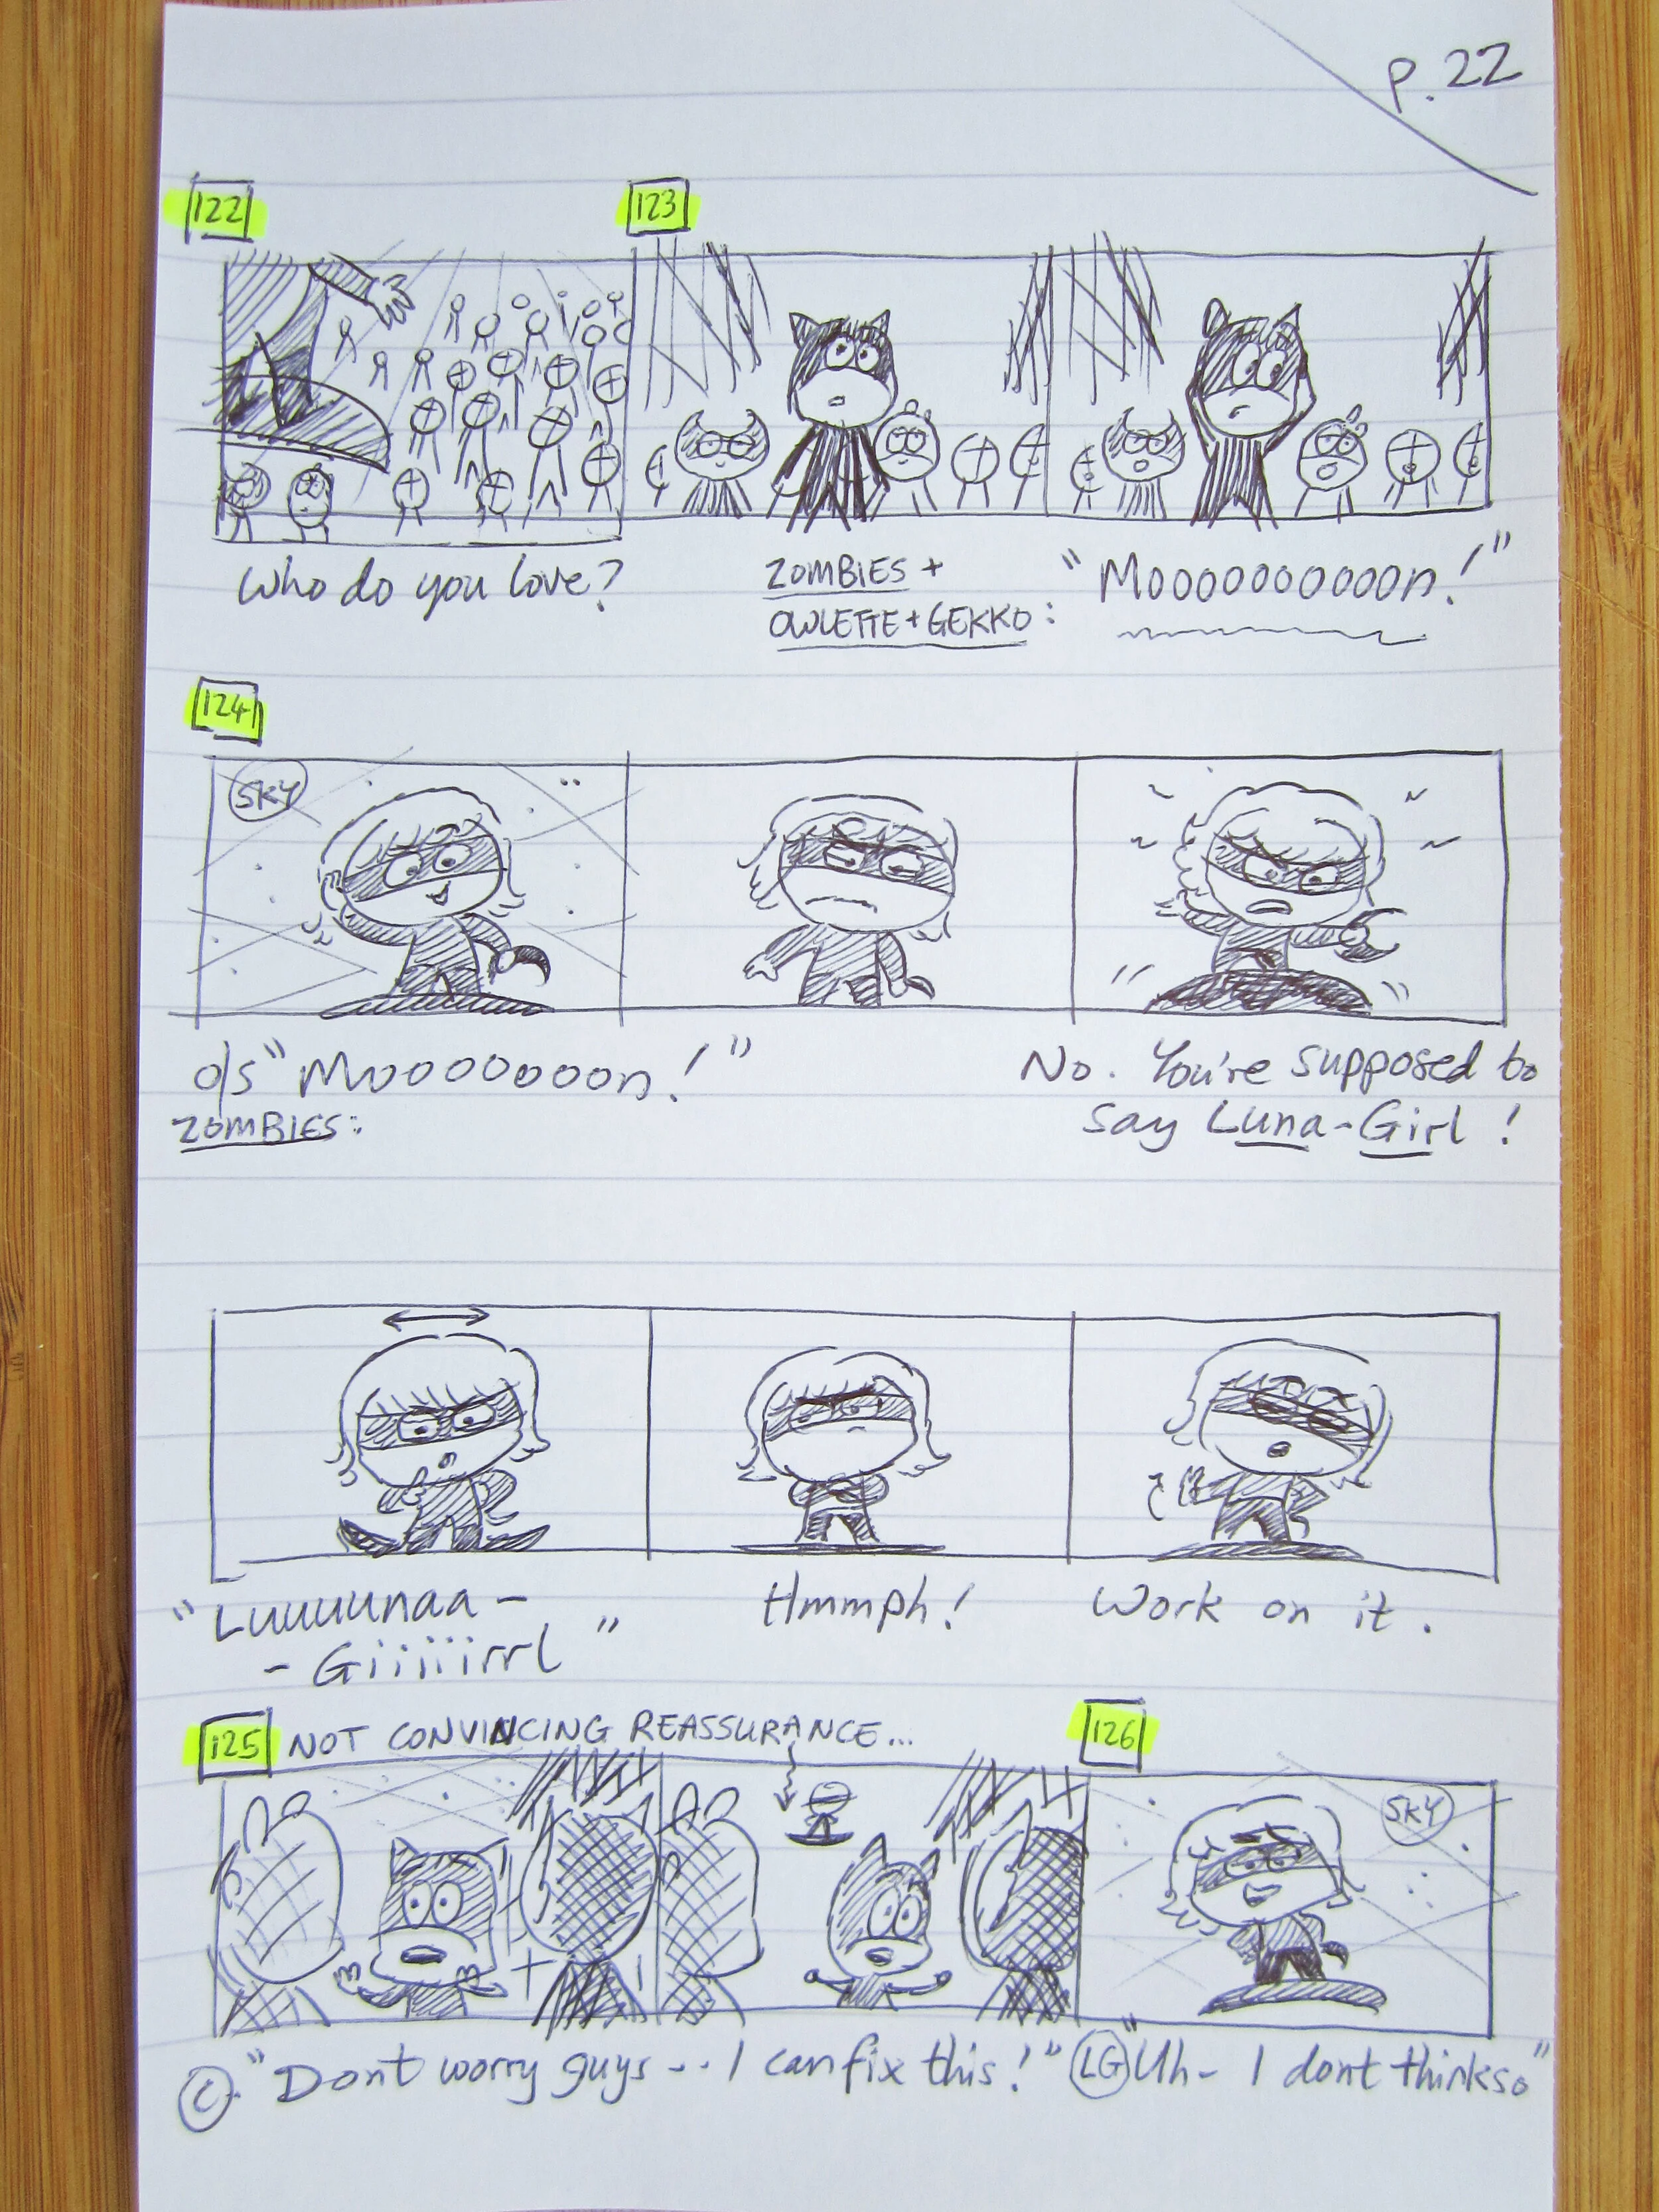 p.22
122
123
Who do you love?
ZOMBIES +
OWLETTE + GEKKO:
"Mooooooooooon!"
124
SKY
o/s "Moooooooon!"
ZOMBIES:
No. You're supposed to
say Luna-Girl!
"Luuuuunaa -
- Giiiiiirrl"
Hmmph!
Work on it.
125 NOT CONVINCING REASSURANCE...
126
SKY
C. "Dont worry guys -.. I can fix this!"
LG "Uh- I dont thinkso"